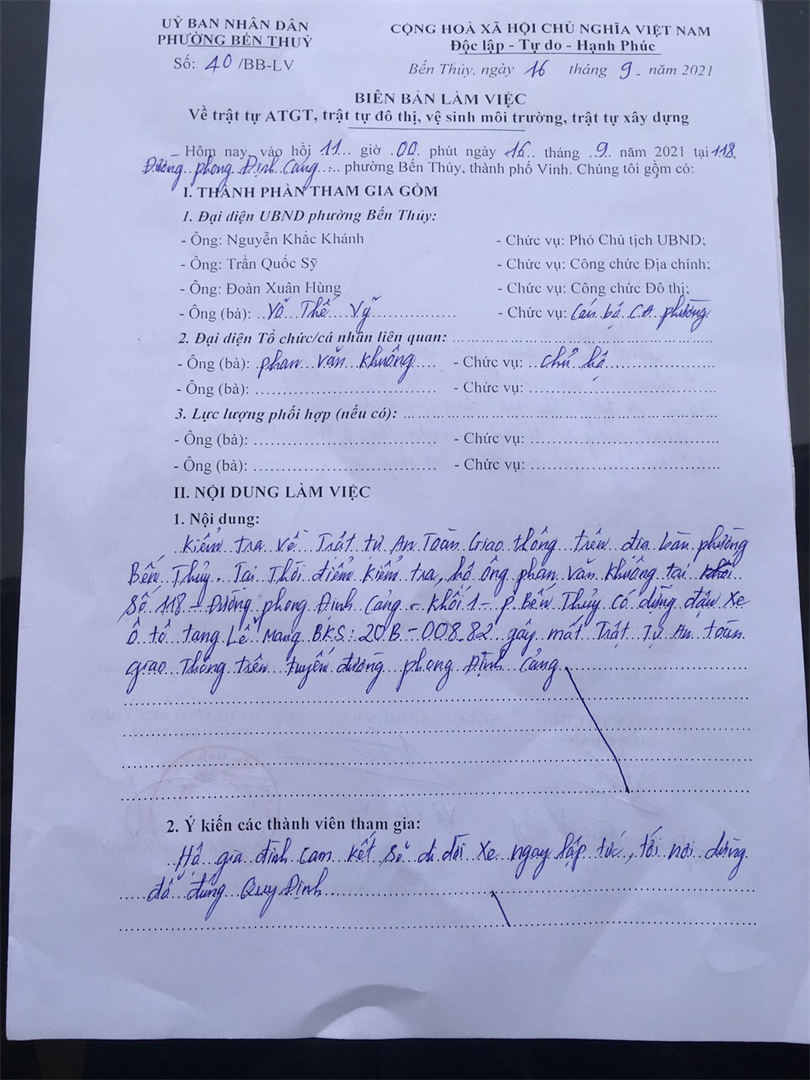 UỶ BAN NHÂN DÂN
PHƯỜNG BẾN THUỶ
Số: 40 /BB-LV
CỘNG HOÀ XÃ HỘI CHỦ NGHĨA VIỆT NAM
Độc lập - Tự do - Hạnh Phúc
Bến Thủy, ngày 16 tháng 9 năm 2021
BIÊN BẢN LÀM VIỆC
Về trật tự ATGT, trật tự đô thị, vệ sinh môi trường, trật tự xây dựng
Hôm nay, vào hồi 11 giờ 00 phút ngày 16 tháng 9 năm 2021 tại 118
Đường phong Định Cảng phường Bến Thủy, thành phố Vinh. Chúng tôi gồm có:
I. THÀNH PHẦN THAM GIA GỒM
1. Đại diện UBND phường Bến Thủy:
- Ông: Nguyễn Khắc Khánh - Chức vụ: Phó Chủ tịch UBND;
- Ông: Trần Quốc Sỹ - Chức vụ: Công chức Địa chính;
- Ông: Đoàn Xuân Hùng - Chức vụ: Công chức Đô thị;
- Ông (bà): Võ Thế Vỹ - Chức vụ: Cán bộ CA phường
2. Đại diện Tổ chức/cá nhân liên quan:
- Ông (bà): phan văn Khường - Chức vụ: chủ hộ
- Ông (bà): - Chức vụ:
3. Lực lượng phối hợp (nếu có):
- Ông (bà): - Chức vụ:
- Ông (bà): - Chức vụ:
II. NỘI DUNG LÀM VIỆC
1. Nội dung:
Kiểm tra về Trật tự An Toàn Giao thông trên địa bàn phường
Bến Thủy. Tại Thời điểm kiểm tra, hộ ông phan văn Khường tại
Số 118 - Đường phong Định Cảng - Khối 1 - P. Bến Thủy có dừng đậu xe
ô tô tang Lễ Mang BKS: 20B-008.82 gây mất Trật Tự An toàn
giao thông trên tuyến đường phong Định Cảng
2. Ý kiến các thành viên tham gia:
Hộ gia đình cam kết sẽ di dời xe ngay lập tức, tới nơi dừng
đỗ đúng Quy Định